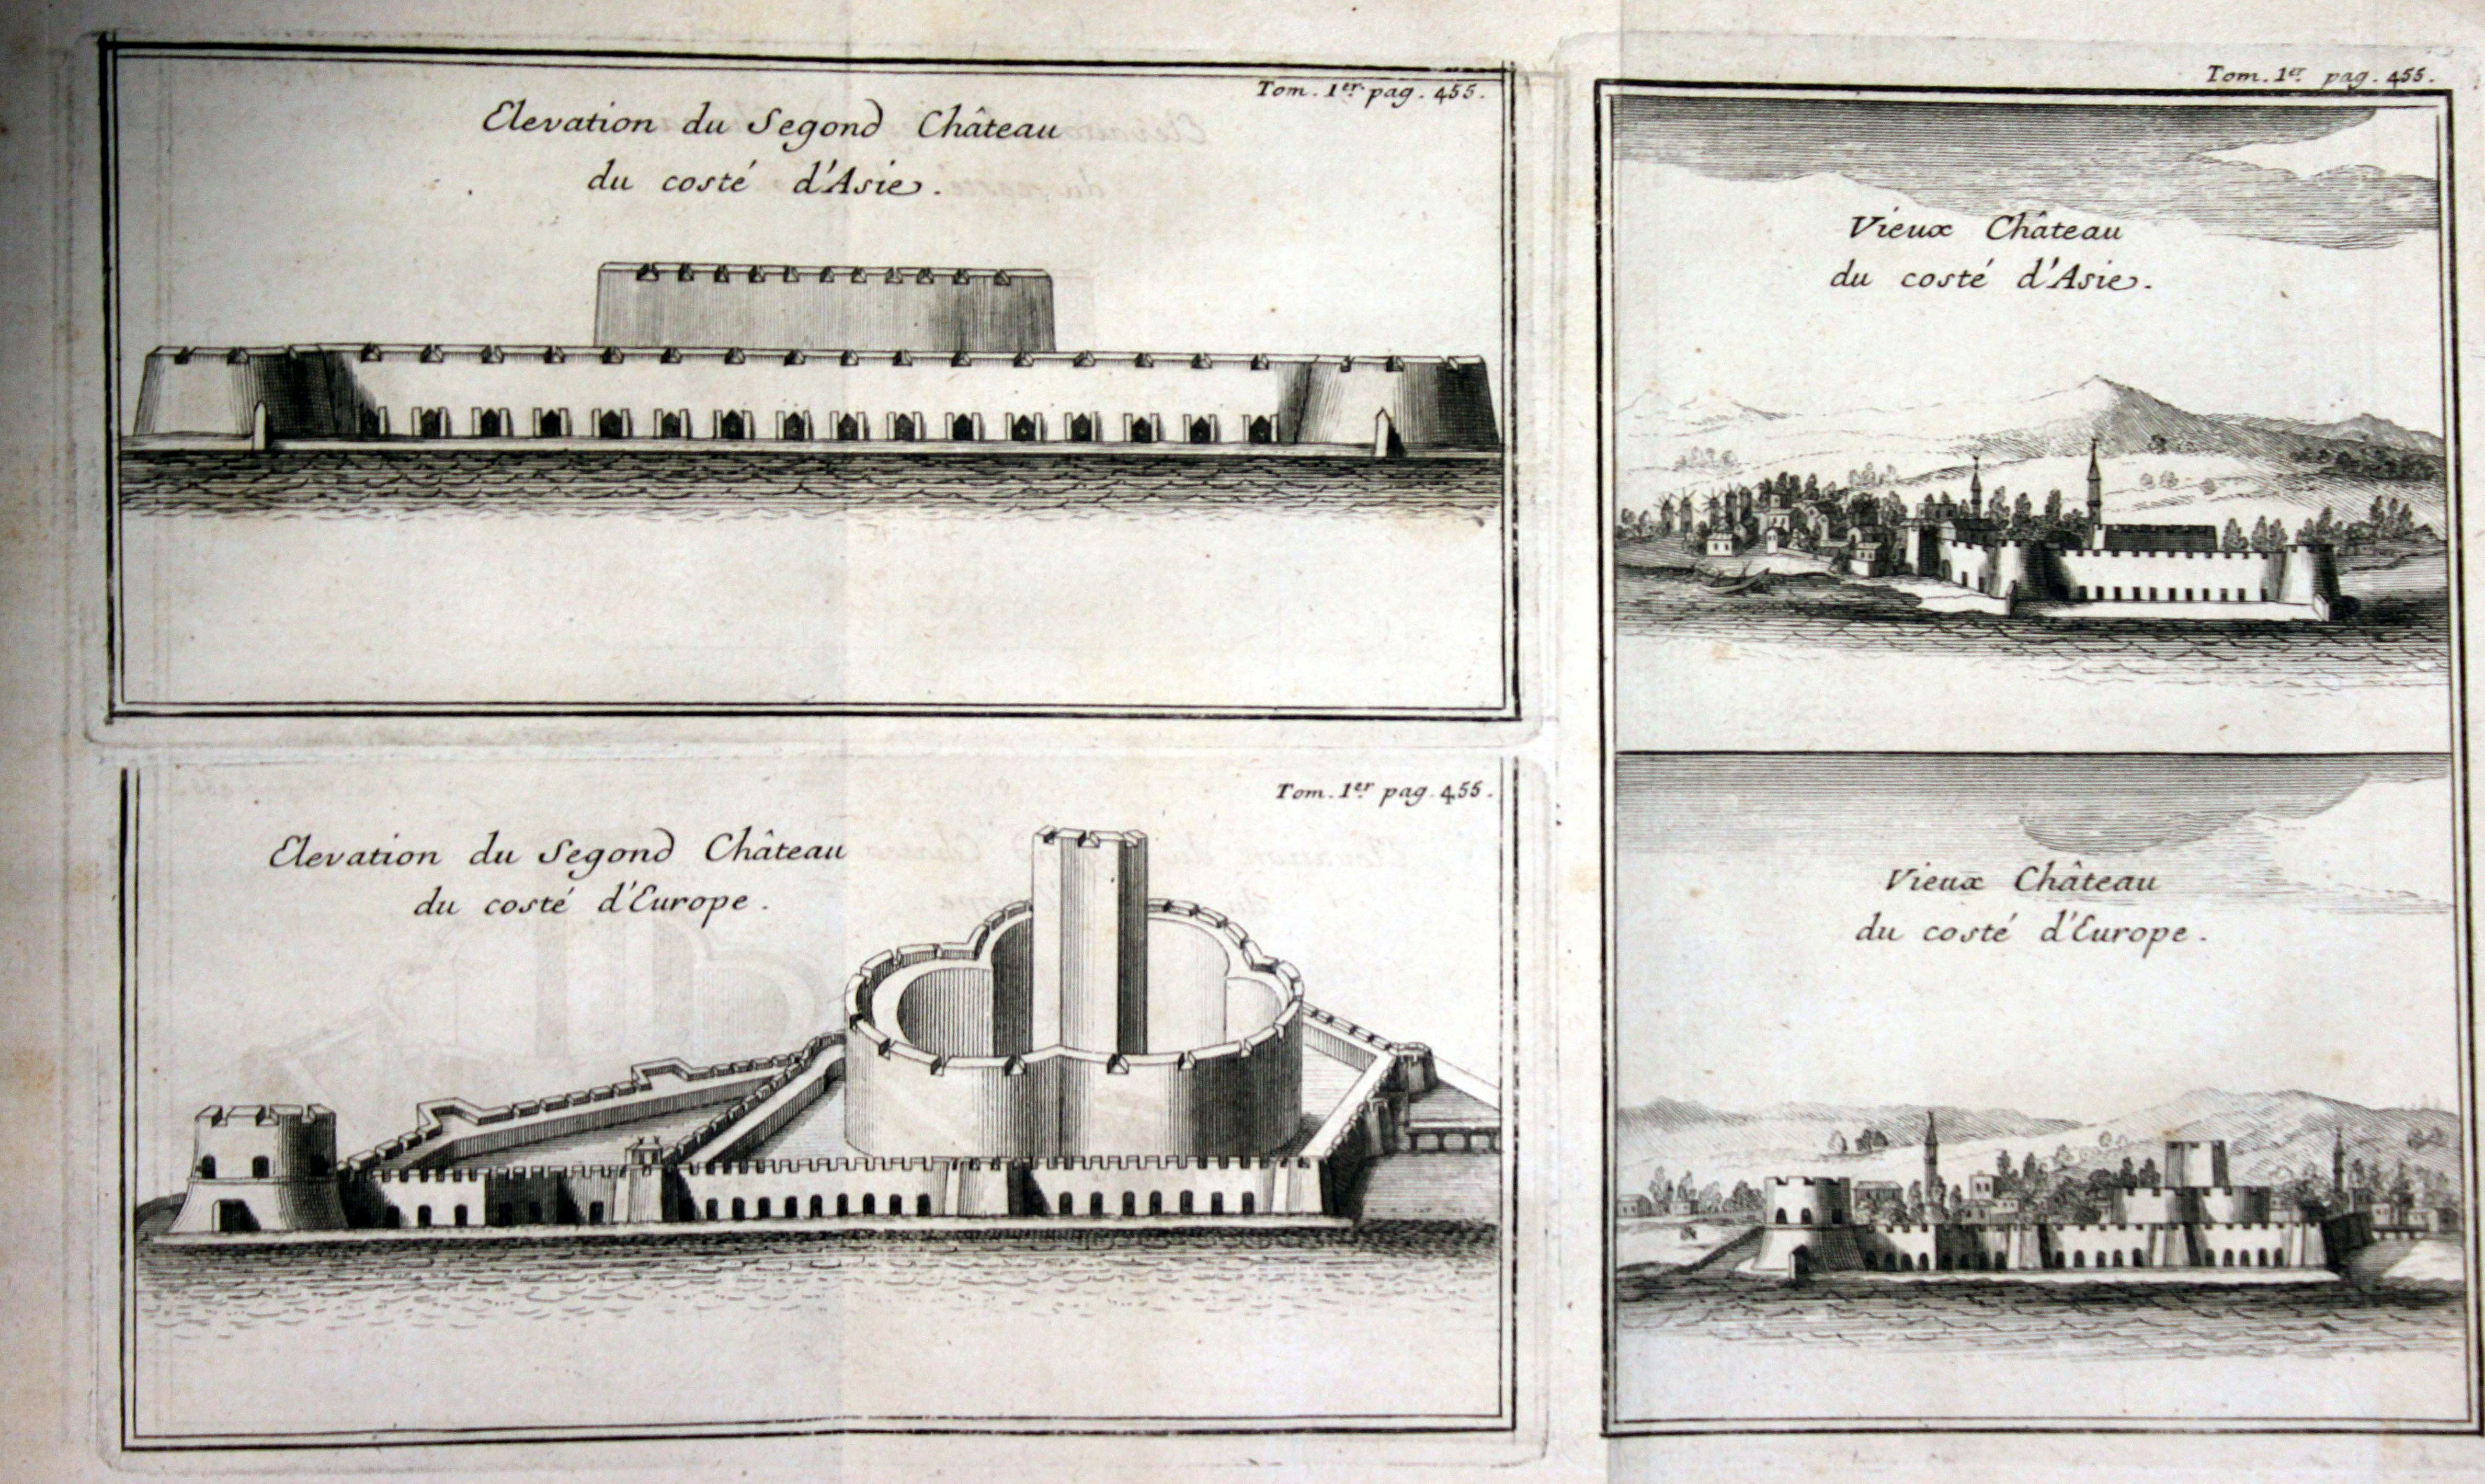 Tom. 1er. pag. 455.
Elevation du Segond Château
du costé d'Asie.
Tom. 1er pag. 455.
Elevation du Segond Château
du costé d'Europe.
Tom. 1er. pag. 455.
Vieux Château
du costé d'Asie.
Vieux Château
du costé d'Europe.